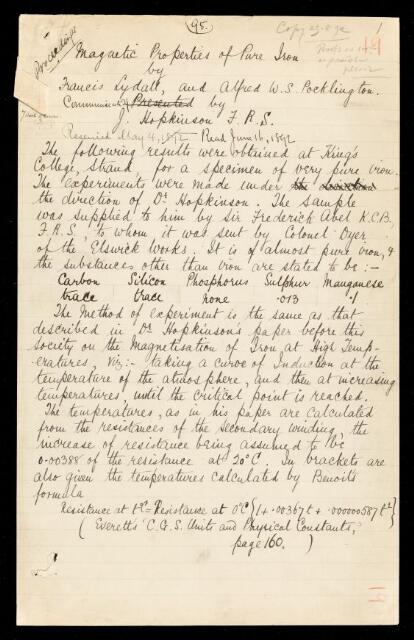 95.
Copy 23.6.92
1
Proceedings
Magnetic Properties of Pure Iron
by
Francis Lydall, and Alfred W. S. Pocklington.
Communicated Presented by
J. Hopkinson F.R.S.
Received May 4, 1892 Read June 16, 1892
The following results were obtained at King's
College, Strand, for a specimen of very pure iron.
The experiments were made under the
the direction of Dr. Hopkinson. The sample
was supplied to him by Sir Frederick Abel K.C.B.
F.R.S., to whom it was sent by Colonel Dyer
of the Elswick Works. It is of almost pure iron, &
the substances other than iron are stated to be :-
Carbon Silicon Phosphorus Sulphur Manganese
trace trace none .013 .1
The Method of experiment is the same as that
described in Dr. Hopkinson's paper before this
society on the Magnetisation of Iron at High Temp-
eratures, viz:- taking a curve of Induction at the
temperature of the atmosphere, and then at increasing
temperatures, until the critical point is reached.
The temperatures, as in his paper are calculated
from the resistances of the secondary winding, the
increase of resistance being assumed to be
0.00388 of the resistance at 20°C. In brackets are
also given the temperatures calculated by Benoit's
formula
Resistance at t° = Resistance at 0°C {1 + .00367t + .000000587 t²}
(Everett's C.G.S. Units and Physical Constants,
page 160. )